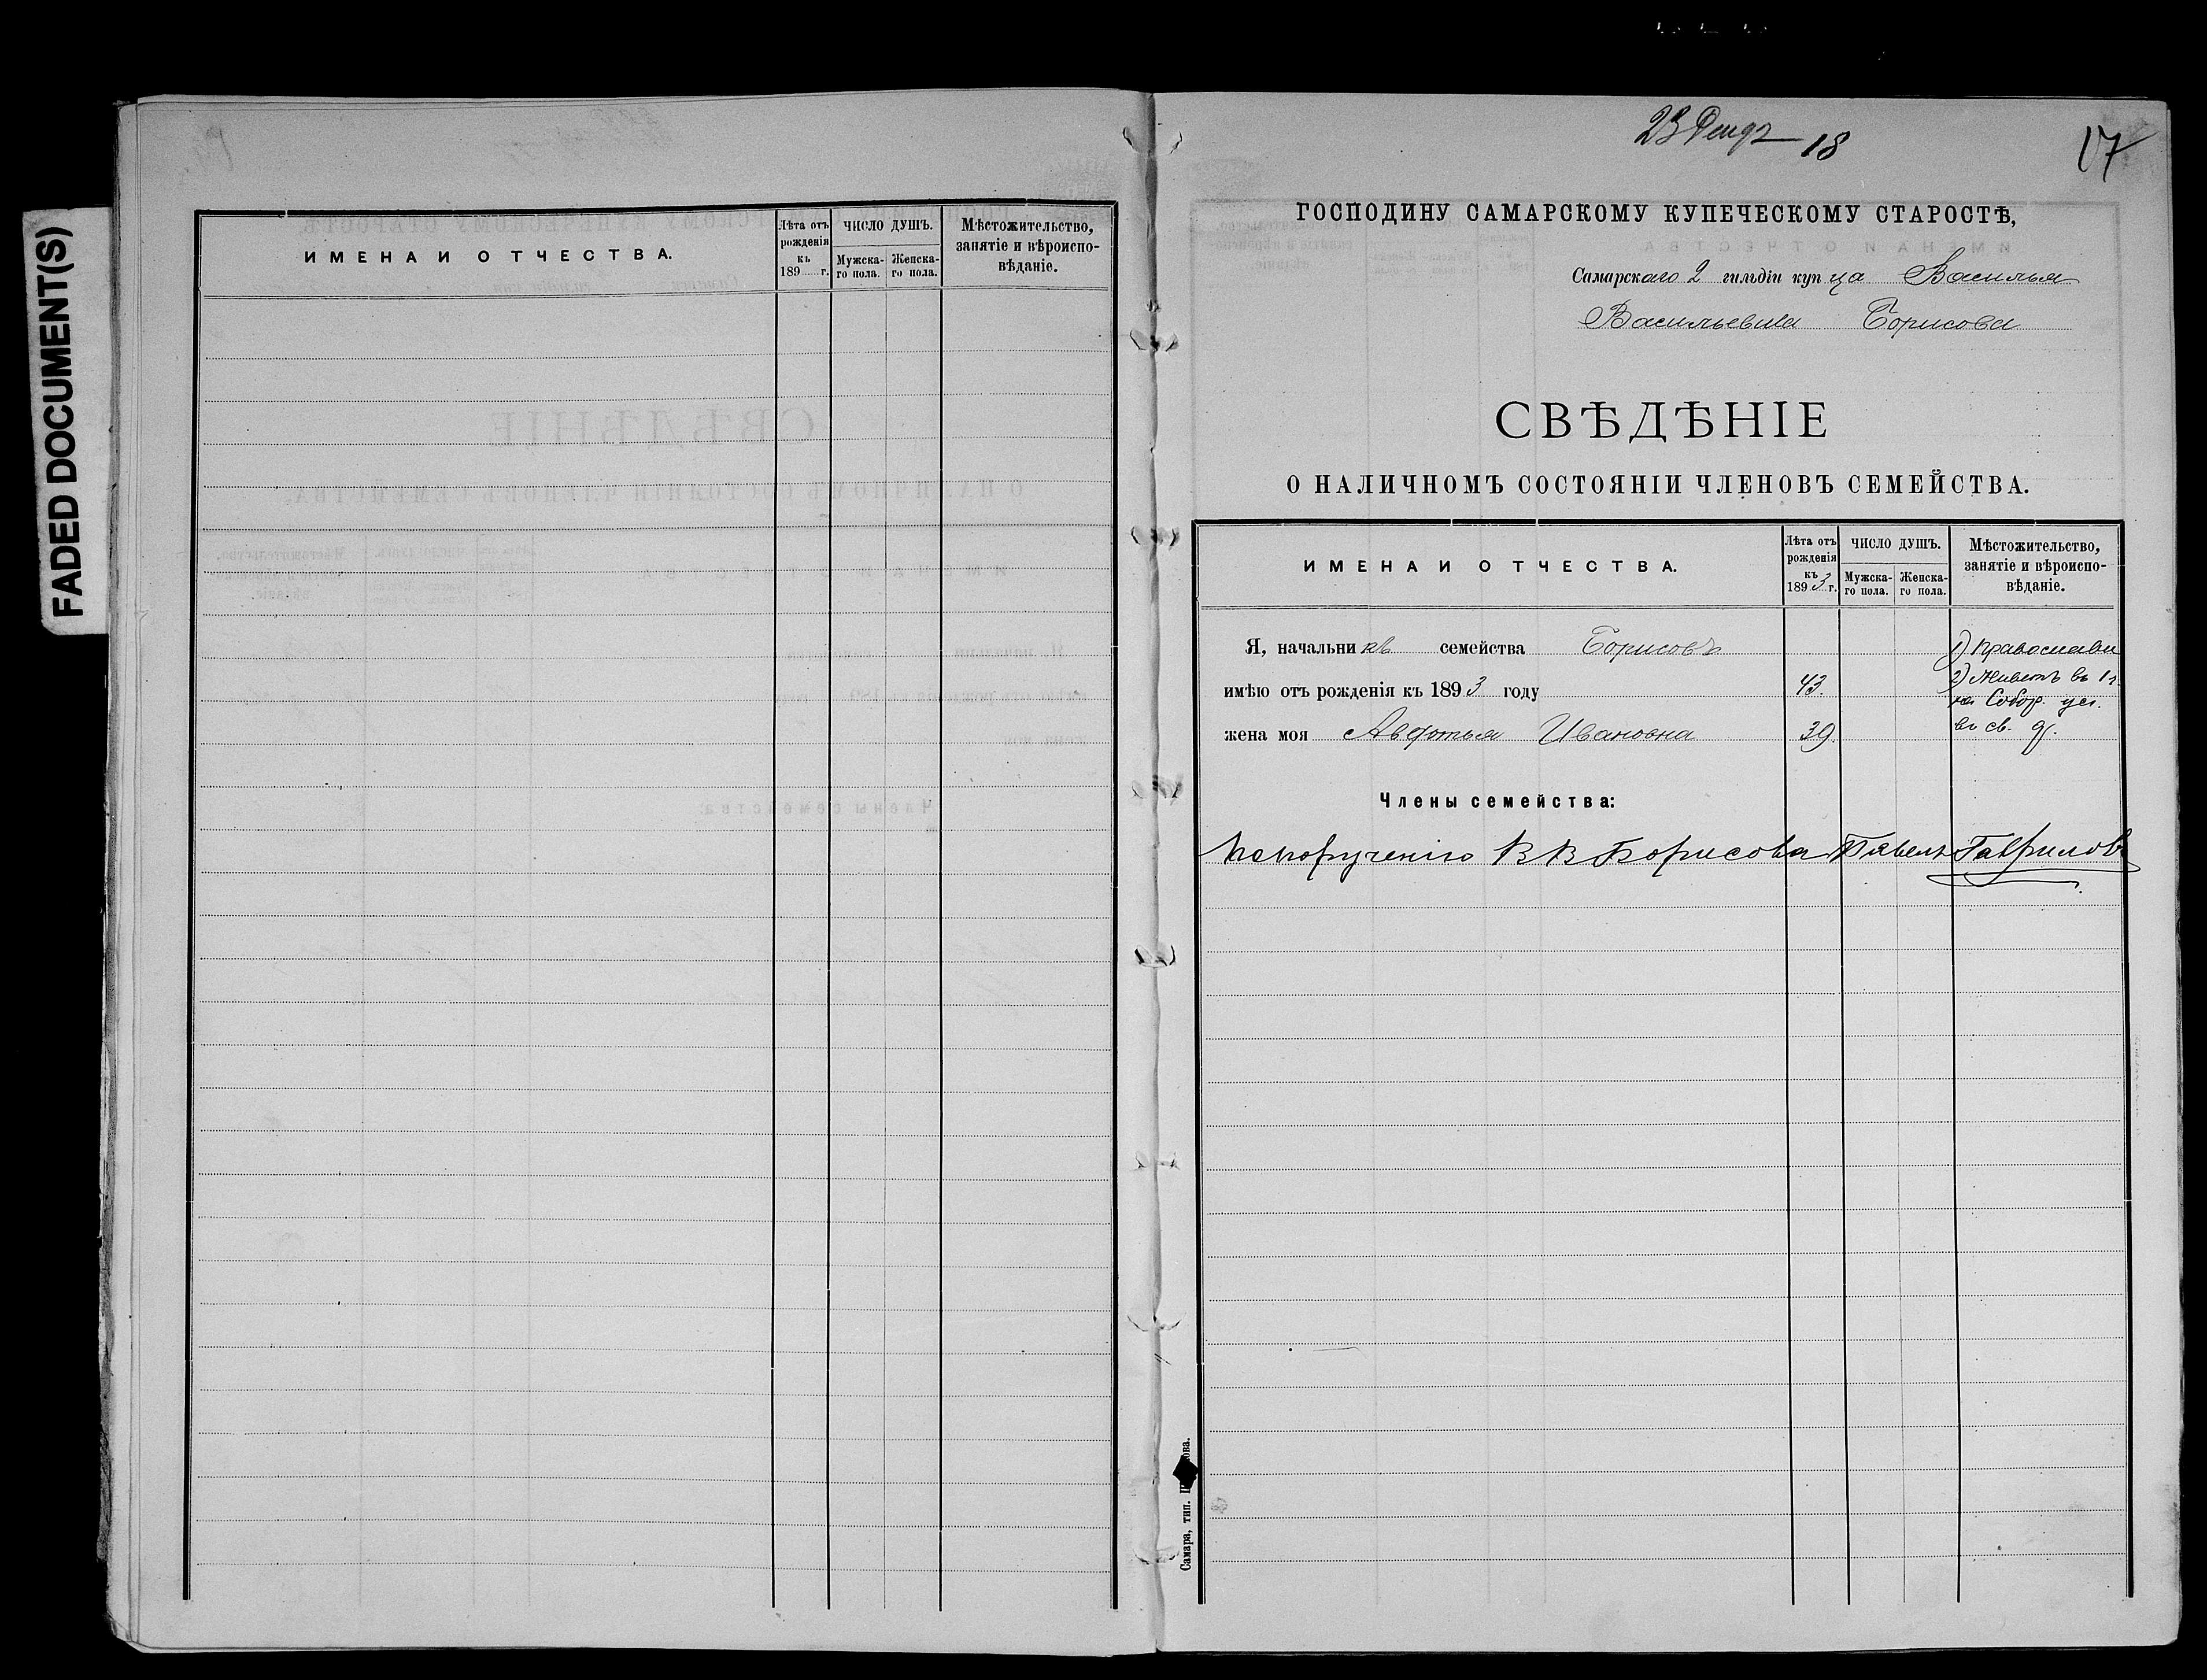 FADED DOCUMENT(S)
ИМЕНА И ОТЧЕСТВА.
Лѣта отъ рожденія къ 189 г.
ЧИСЛО ДУШЪ.
Мужска-го пола.
Женска-го пола.
Мѣстожительство, занятіе и вѣроиспо-вѣданіе.
23 18
17
ГОСПОДИНУ САМАРСКОМУ КУПЕЧЕСКОМУ СТАРОСТѢ,
Самарскаго 2 гильдіи купца Василья
Васильевича Борисова
СВѢДѢНІЕ
О НАЛИЧНОМЪ СОСТОЯНІИ ЧЛЕНОВЪ СЕМЕЙСТВА.
ИМЕНА И ОТЧЕСТВА.
Лѣта отъ рожденія къ 1893 г.
ЧИСЛО ДУШЪ.
Мужска-го пола.
Женска-го пола.
Мѣстожительство, занятіе и вѣроиспо-вѣданіе.
Я, начальникъ семейства Борисовъ 1) Православн
имѣю отъ рожденія къ 1893 году 43. 2) Живетъ въ 1 ч.
на Собор. ул.
жена моя Авдотья Ивановна 39. въ св. д.
Члены семейства:
По порученію В В Борисова Павелъ Гаврилов
Самара, тип.